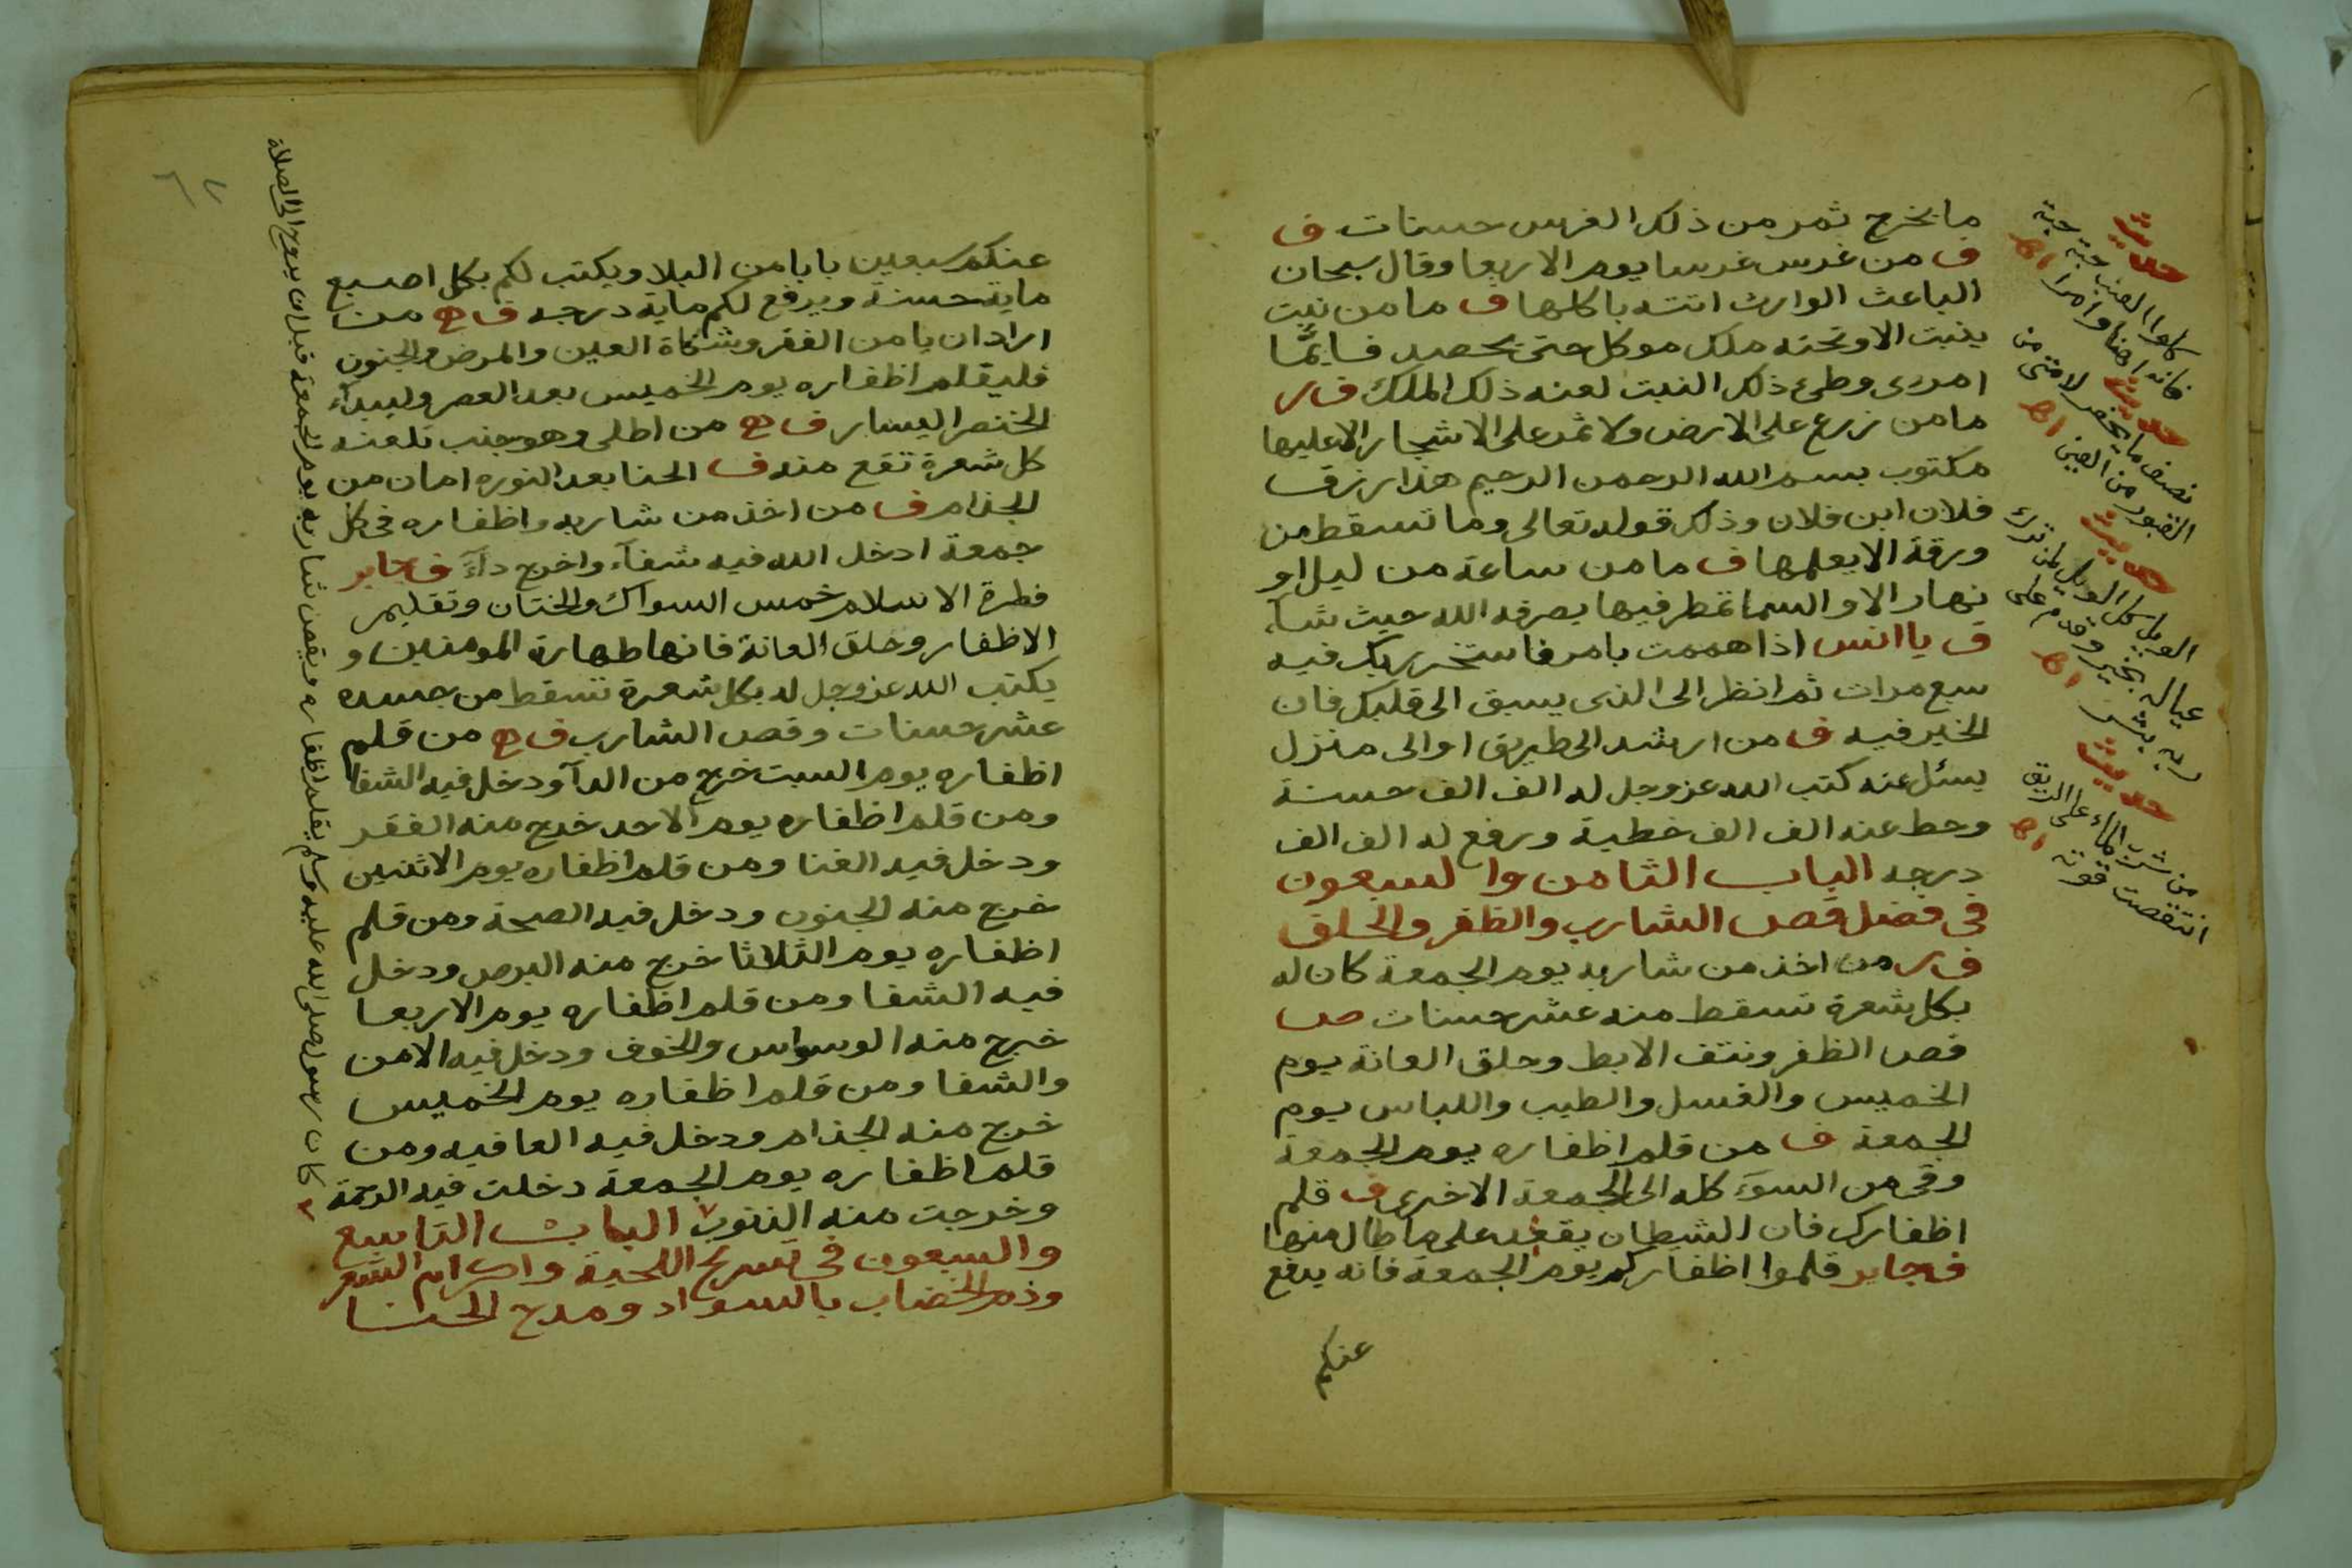 ما يخرج ثمر من ذلك الغرس حسنات ف
ف من غرس غرسا يوم الاربعا وقال سبحان
الباعث الوارث اتته باكلها ف ما من نبت
ينبت الا وتحته ملك موكل حتى يحصد فايما
امرى وطئ ذلك النبت لعنه ذلك الملك ف س
ما من زرع على الارض ولا ثمر على الاشجار الا عليها
مكتوب بسم الله الرحمن الرحيم هذا رزق
فلان ابن فلان وذلك قوله تعالى وما تسقط من
ورقة الا يعلمها ف ما من ساعة من ليل او
نهار الا والسما تمطر فيها يصرفه الله حيث شآء
ف يا انس اذا هممت بامر فاستخر ربك فيه
سبع مرات ثم انظر الى الذى يسبق الى قلبك فان
الخير فيه ف من ارشد الى طريق او الى منزل
يسئل عنه كتب الله عز وجل له الف الف حسنة
وحط عنه الف الف خطية ورفع له الف الف
درجه الباب الثامن والسبعون
فى فضل قص الشارب والظفر والحلق
ف س من اخذ من شاربه يوم الجمعة كان له
بكل شعرة تسقط منه عشر حسنات ص
قص الظفر ونتف الابط وحلق العانة يوم
الخميس والغسل والطيب واللباس يوم
الجمعة ف من قلم اظفاره يوم الجمعة
وقى من السوء كله الى الجمعة الاخرى ف قلم
اظفارك فان الشيطان يقعد على ما طال منها
ف جابر قلموا اظفاركم يوم الجمعة فانه يدفع
عنكم
حديث
كلوا العنب حبة حبة
فانه اهنا وامرا اه
حديث
نصف ما يحفر لامتى من
القبور من العين اه
حديث
الويل كل الويل لمن ترك
عياله بخير وقدم على
ربه بشر اه
حديث
من شرب الماء على الريق
انتقصت قوته اه
عنكم سبعين بابا من البلا ويكتب لكم بكل اصبع
ماية حسنة ويرفع لكم ماية درجه ف ه من
اراد ان يامن الفقر وشكاة العين والمرض والجنون
فليقلم اظفاره يوم الخميس بعد العصر وليبدآء
الخنصر اليسار ف ه من اطلى وهو جنب تلعنه
كل شعرة تقع منه ف الحنا بعد النوره امان من
الجذام ف من اخذ من شاربه واظفاره فى كل
جمعة ادخل الله فيه شفآء واخرج دآء ف جابر
فطرة الاسلام خمس السواك والختان وتقليم
الاظفار وحلق العانة فانها طهارة المومنين و
يكتب الله عز وجل له بكل شعرة تسقط من جسده
عشر حسنات وقص الشارب ف ه من قلم
اظفاره يوم السبت خرج من الدآ ودخل فيه الشفا
ومن قلم اظفاره يوم الاحد خرج منه الفقر
ودخل فيه الغنا ومن قلم اظفاره يوم الاثنين
خرج منه الجنون ودخل فيه الصحة ومن قلم
اظفاره يوم الثلاثا خرج منه البرص ودخل
فيه الشفا ومن قلم اظفاره يوم الاربعا
خرج منه الوسواس والخوف ودخل فيه الامن
والشفا ومن قلم اظفاره يوم الخميس
خرج منه الجذام ودخل فيه العافيه ومن
قلم اظفاره يوم الجمعة دخلت فيه الرحمة
وخرجت منه الذنوب الباب التاسع
والسبعون فى تسريح اللحية واكرام الشعر
وذم الخضاب بالسواد ومدح الحنا
كان رسول صلى الله عليه وسلم يقلم اظفاره ويقص شاربه يوم الجمعة قبل ان يروح الى الصلاة